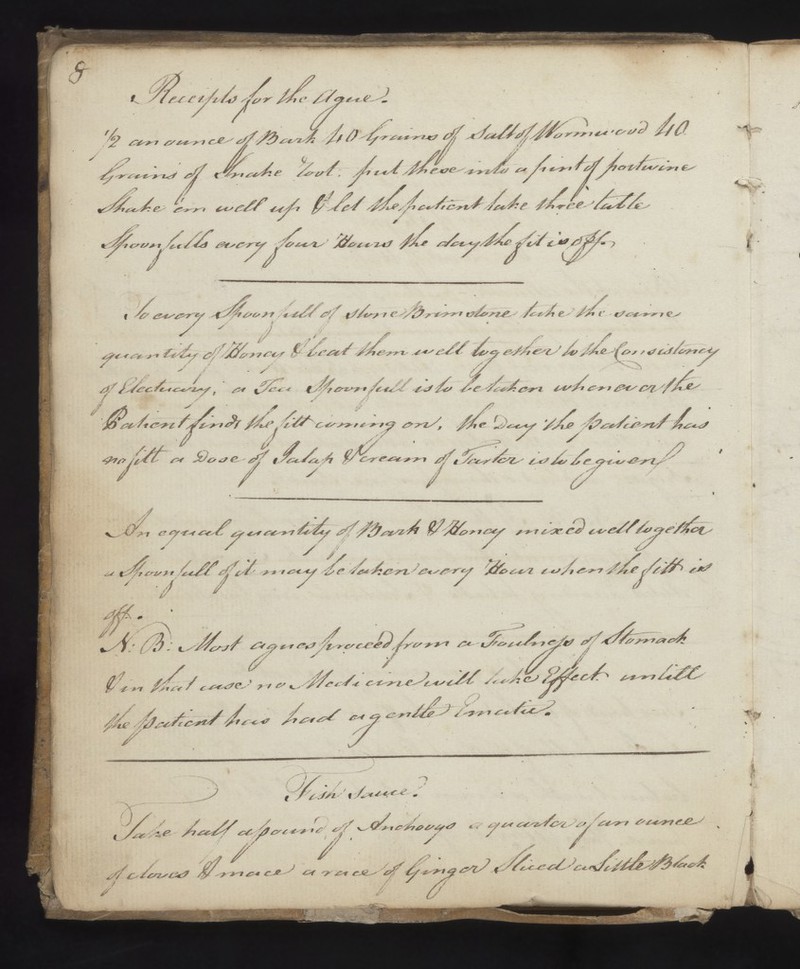 8
Receipts for the Ague.
1/2 an ounce of Bark 40 Grains of Salt of Wormwood 40
Grains of Snake root. put these into a pint of portwine
Shake em well up & let the patient take three table
Spoonfulls every four Hours the day the fit is off.
To every Spoonfull of stone Brimstone take the same
quantity of Honey & beat them well together to the Consistency
of Electuary; a Tea Spoonfull is to be taken whenever the
Patient finds the fitt coming on, the Day the patient has
no fitt a Dose of Jalap & cream of Tarter is to be given
An equal quantity of Bark & Honey mixed well together
a Spoonfull of it may be taken every Hour when the fitt is
off.
N: B: Most agues proceed from a Foulness of Stomack
& in that case no Medicine will take Effect untill
the patient has had a gentle Ematic.
Fish Sauce.
Take half a pound of Anchovys a quarter of an ounce
of cloves & mace a race of Ginger Sliced a Little Black